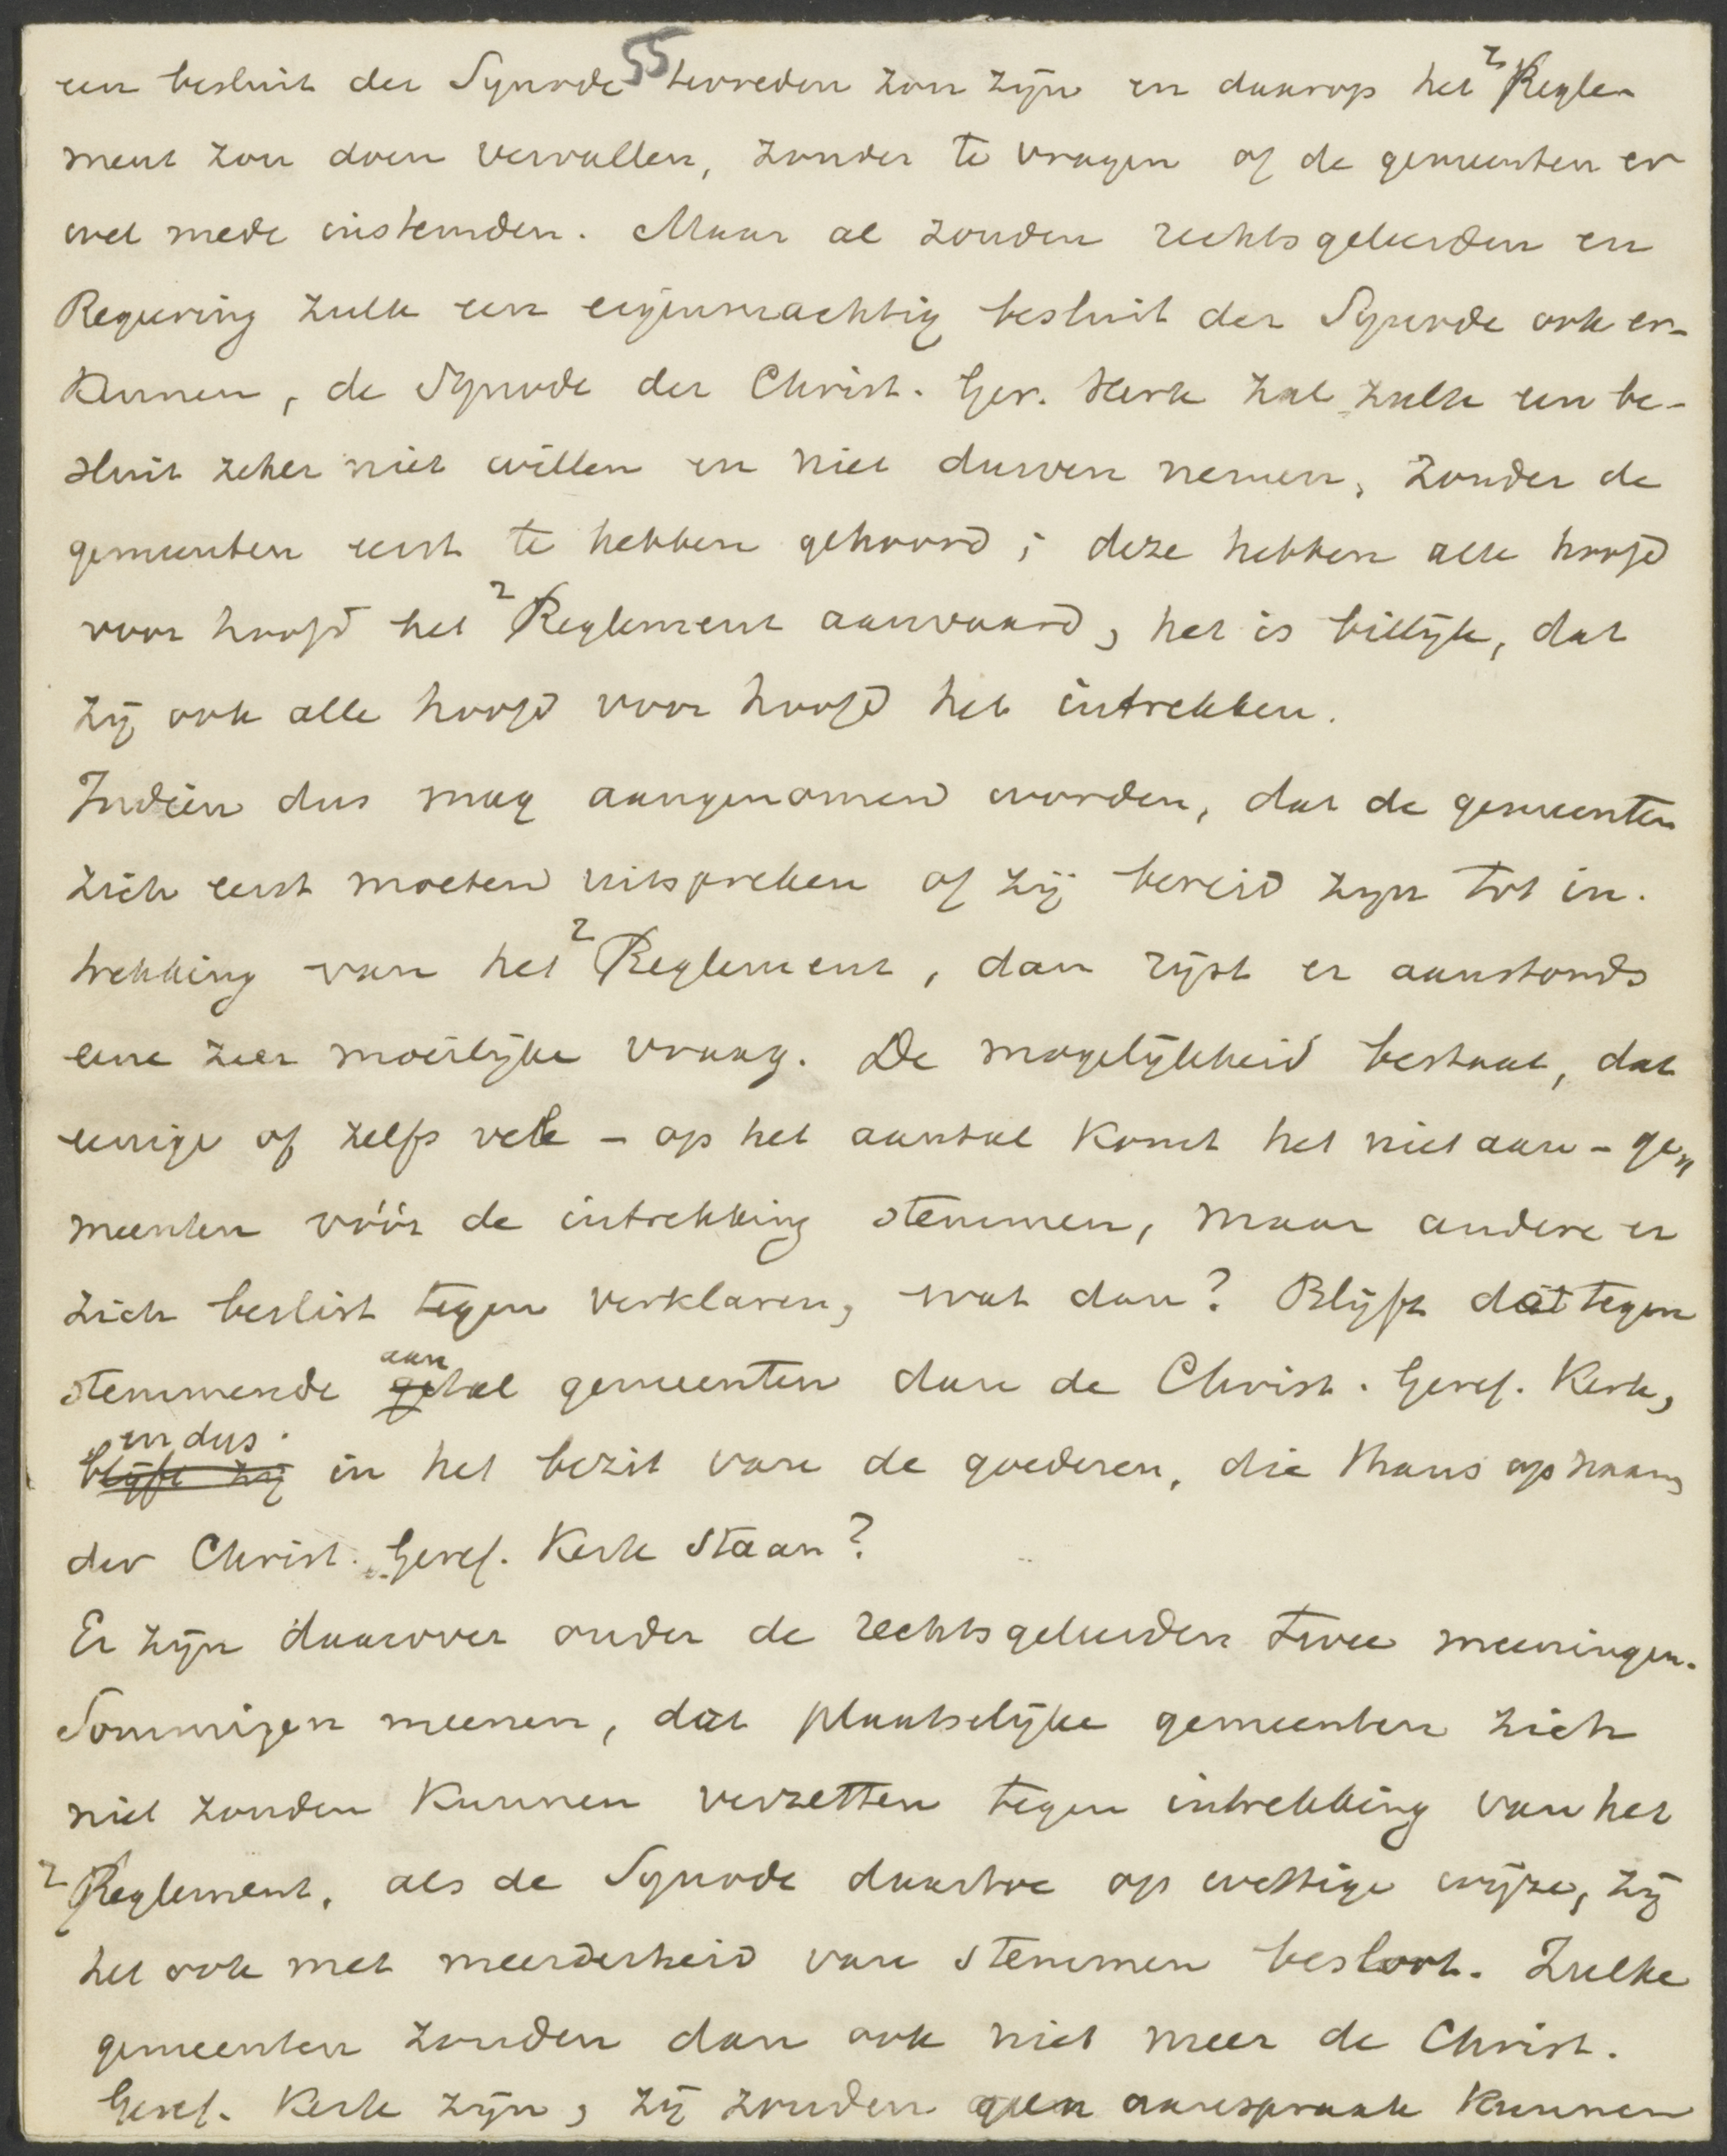 een besluit der Synode 55 tevreden zou zijn en daarop het ² Regle-
ment zou doen vervallen, zonder te vragen of de gemeenten er
wel mede instemden. Maar al zouden rechtsgeleerden en
Regeering zulk een eigenmachtig besluit der Synode ook er-
kennen, de Synode der Christ. Ger. Kerk zal zulk een be-
sluit zeker niet willen en niet durven nemen, zonder de
gemeenten eerst te hebben gehoord; deze hebben alle hoofd
voor hoofd het ² Reglement aanvaard, het is billijk, dat
zij ook alle hoofd voor hoofd het intrekken.
Indien dus mag aangenomen worden, dat de gemeenten
zich eerst moeten uitspreken of zij bereid zijn tot in-
trekking van het ² Reglement, dan rijst er aanstonds
eene zeer moeilijke vraag. De mogelijkheid bestaat, dat
eenige of zelfs vele - op het aantal komt het niet aan - ge-
meenten vóór de intrekking stemmen, maar andere er
zich beslist tegen verklaren, wat dan? Blijft dat tegen
stemmende aan
getal gemeenten dan de Christ. Geref. Kerk,
en dus
blijft zij in het bezit van de goederen, die thans op naam
der Christ. Geref. Kerk staan?
Er zijn daarover onder de rechtsgeleerden twee meeningen.
Sommigen meenen, dat plaatselijke gemeenten zich
niet zouden kunnen verzetten tegen intrekking van het
² Reglement, als de Synode daartoe op wettige wijze, zij
het ook met meerderheid van stemmen besloot. Zulke
gemeenten zouden dan ook niet meer de Christ.
Geref. Kerk zijn, zij zouden geen aanspraak kunnen